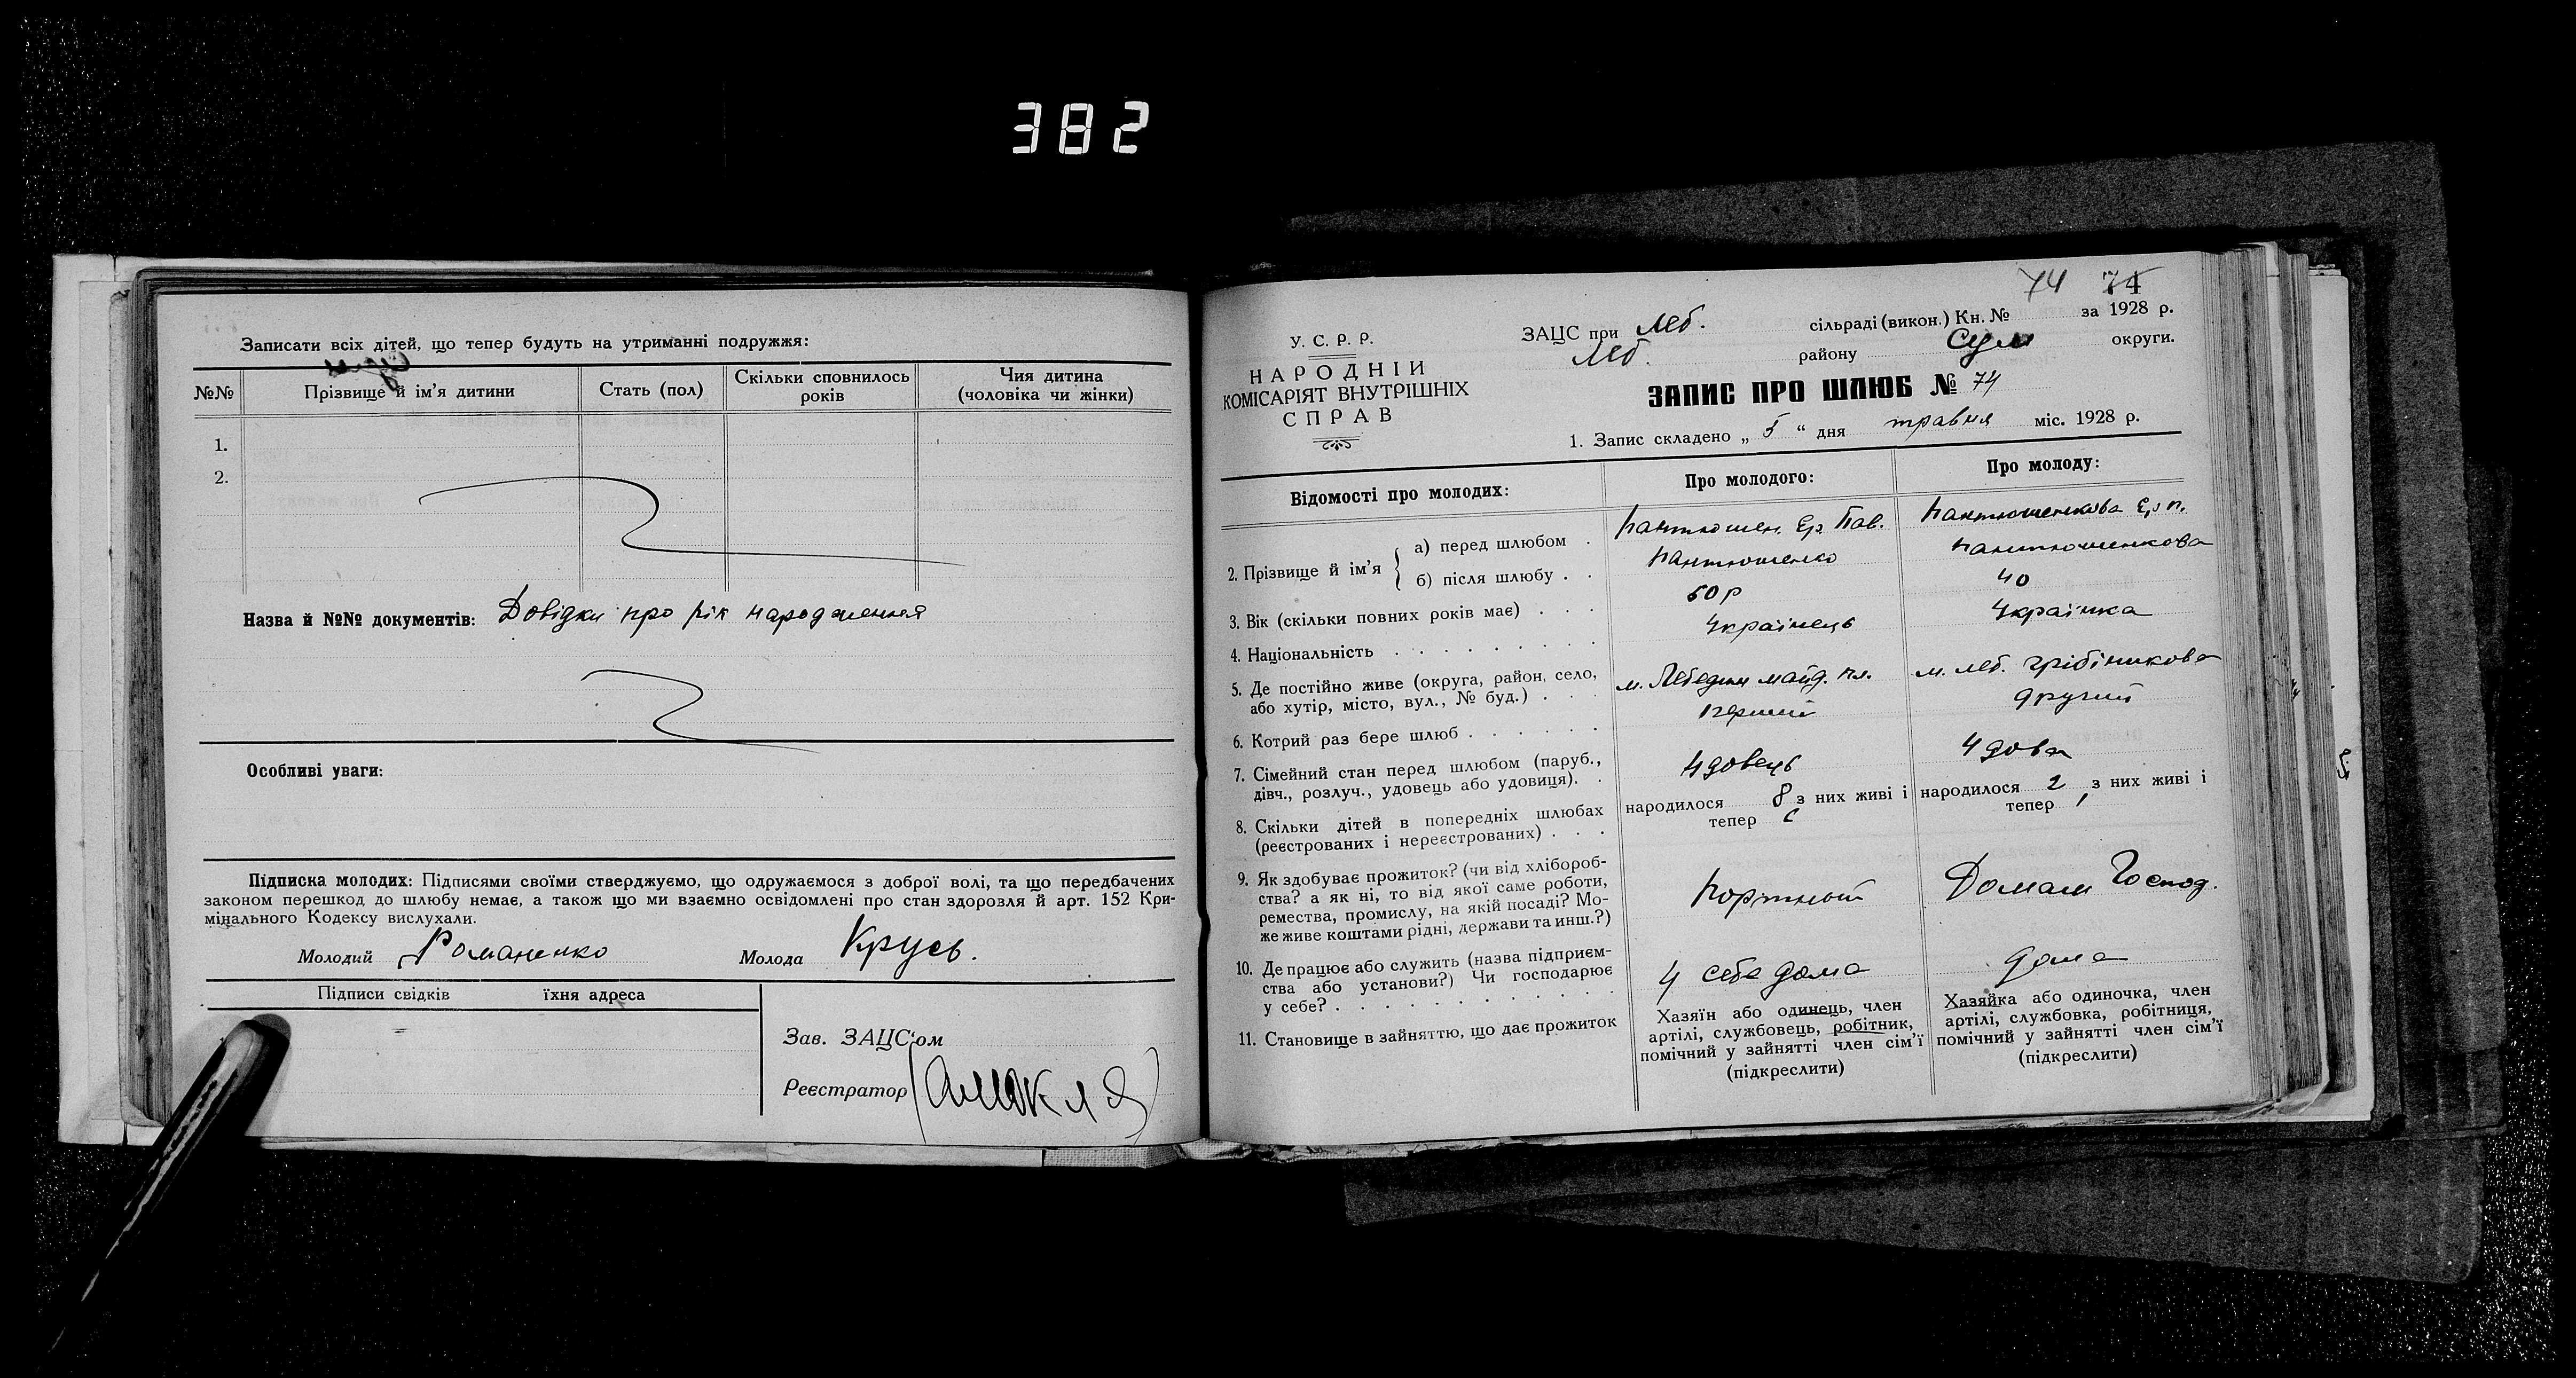 382
Записати всіх дітей, що тепер будуть на утриманні подружжя:
№№ Прізвище й ім'я дитини Стать (пол) Скільки сповнилось років Чия дитина (чоловіка чи жінки)
1.
2.
Назва й №№ документів: Довідки про рік народження
Особливі уваги:
Підписка молодих: Підписями своїми стверджуємо, що одружаємося з доброї волі, та що передбачених
законом перешкод до шлюбу немає, а також що ми взаємно освідомлені про стан здоровля й арт. 152 Кри-
мінального Кодексу вислухали.
Молодий Романенко Молода Крусь.
Підписи свідків їхня адреса
Зав. ЗАЦС'ом
Реєстратор
74 74
У. С. Р. Р.
НАРОДНІЙ
КОМІСАРІЯТ ВНУТРІШНІХ
СПРАВ
ЗАЦС при Леб. сільраді (викон.) Кн. № за 1928 р.
Леб. району Сум округи.
ЗАПИС ПРО ШЛЮБ № 74
1. Запис складено „ 5 “ дня травня міс. 1928 р.
Відомості про молодих: Про молодого: Про молоду:
2. Прізвище й ім'я { а) перед шлюбом . Пантюшен. Пав. Пантюшенкова
б) після шлюбу . . Пантюшенко Пантюшенкова
3. Вік (скільки повних років має) . . . 50 р 40
4. Національність . . . . . . . . . Українець Українка
5. Де постійно живе (округа, район, село,
або хутір, місто, вул., № буд.) . . . м. Лебедин майд. пл. м. Леб. Грібіникова
6. Котрий раз бере шлюб . . . . . . перший другий
7. Сімейний стан перед шлюбом (паруб.,
дівч., розлуч., удовець або удовиця). . Удовець Удова
8. Скільки дітей в попередніх шлюбах
(реєстрованих і нереєстрованих) . . .
народилося 8 з них живі і
тепер
народилося 2 з них живі і
тепер 1
9. Як здобуває прожиток? (чи від хлібороб-
ства? а як ні, то від якої саме роботи,
ремества, промислу, на якій посаді? Мо-
же живе коштами рідні, держави та инш.?)
Портной Домаш Господ.
10. Де працює або служить (назва підприєм-
ства або установи?) Чи господарює
у себе? . . . . . . . . . . . .
У себе дома дома
11. Становище в зайняттю, що дає прожиток
Хазяїн або одинець, член
артілі, службовець, робітник,
помічний у зайнятті член сім'ї
(підкреслити)
Хазяйка або одиночка, член
артілі, службовка, робітниця,
помічний у зайнятті член сім'ї
(підкреслити)